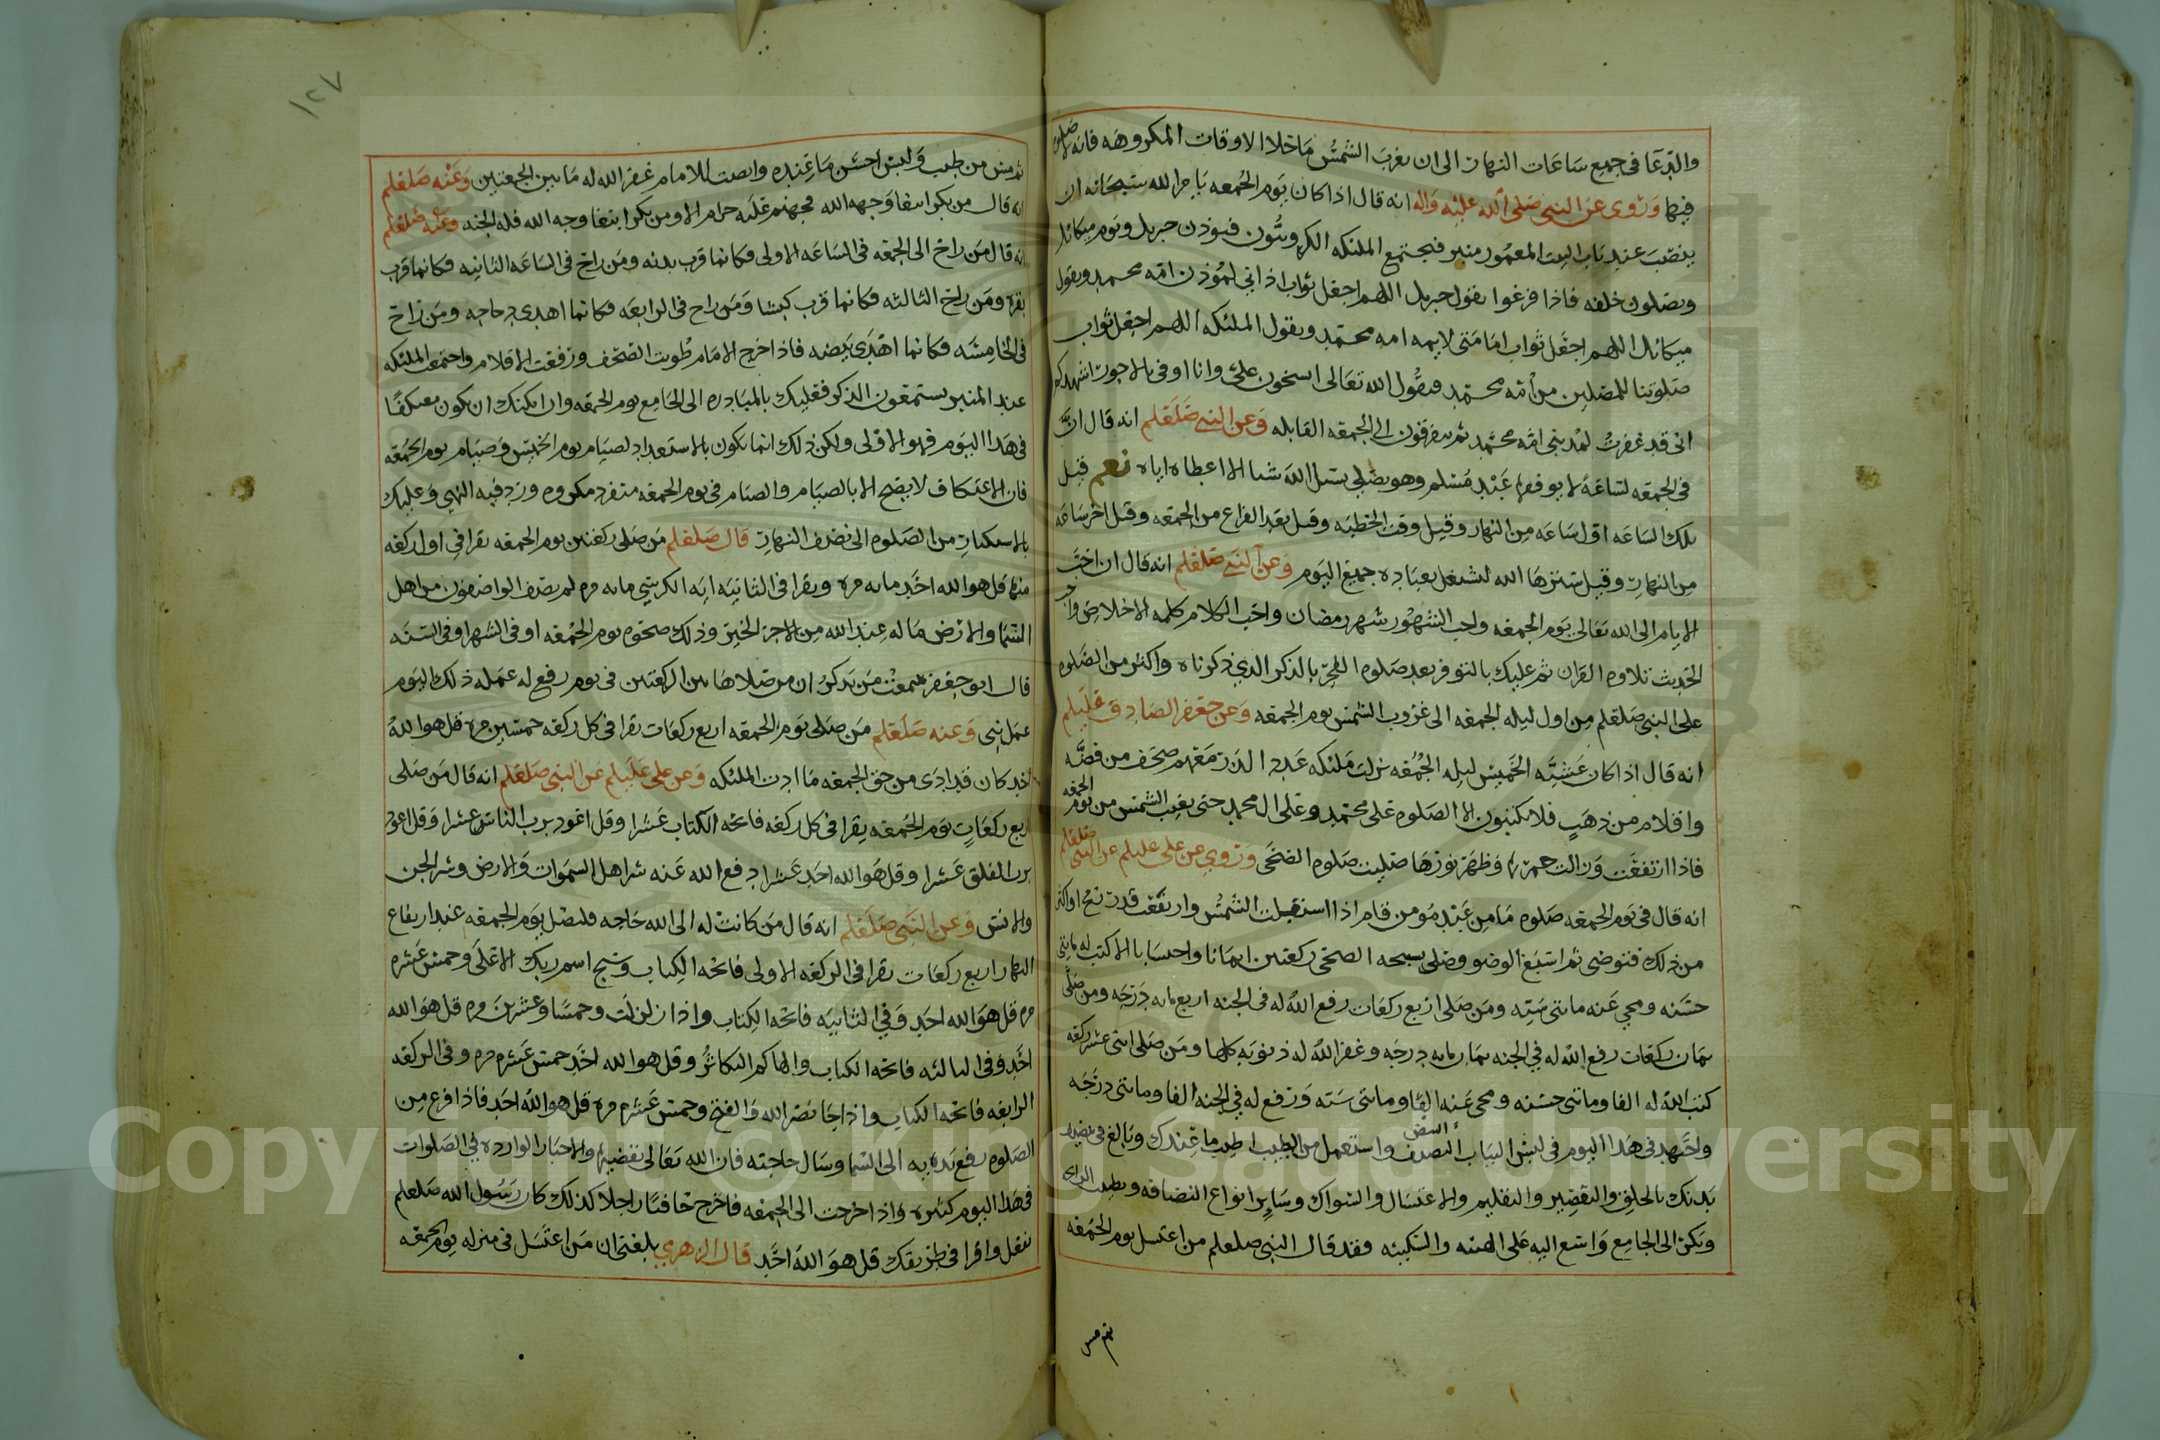 والدعا فى جميع ساعات النهار الى ان تغرب الشمس ما خلا الاوقات المكروهه فانه لا صلوه
فيها وروى عن النبى صلى الله عليه واله انه قال اذا كان يوم الجمعه يامر الله سبحانه ان
ينصب عند باب البيت المعمور منبر فيجتمع الملئكه الكروبيون فيوذن جبريل ويوم ميكائل
ويصلون خلفه فاذا فرغوا يقول جبريل اللهم اجعل ثواب اذانى لموذن امه محمد ويقول
ميكائل اللهم اجعل ثواب امامتى لايمه امه محمد ويقول الملئكه اللهم اجعل ثواب
صلوتنا للمصلين من امه محمد فيقول الله تعالى اتسخون على وانا اوفى بالاجور اشهدكم
انى قد غفرت لمذنبى امه محمد ثم يتفرقون الى الجمعه القابله وعن النبى صلعلم انه قال ان
فى الجمعه لساعه لا يوافقها عبد مسلم وهو يصلى يسل الله شيا الا اعطاه اياه نعم قيل
تلك الساعه اول ساعه من النهار وقيل وقت الخطبه وقيل بعد الفراغ من الجمعه وقيل اخر ساعه
من النهار وقيل سترها الله لتشغل بعباده جميع اليوم وعن النبى صلعلم انه قال ان احب
الايام الى الله تعالى يوم الجمعه واحب الشهور شهر رمضان واحب الكلام كلمه الاخلاص واخير
الحديث تلاوه القران ثم عليك بالتوفر بعد صلوه الفجر بالذكر الذى ذكرناه واكثر من الصلوه
على النبى صلعلم من اول ليله الجمعه الى غروب الشمس يوم الجمعه وعن جعفر الصادق عليلم
انه قال اذا كان عشيه الخميس ليله الجمعه نزلت ملئكه عدد الذر معهم صحف من فضه
واقلام من ذهب فلا يكتبون الا الصلوه على محمد وعلى ال محمد حتى يغيب الشمس من يوم الجمعه
فاذا ارتفعت وزالت حمرتها وظهر نورها صليت صلوه الضحى وروى عن على عليلم عن النبى صلعلم
انه قال فى يوم الجمعه صلوه ما من عبد مومن قام اذا استقبلت الشمس وارتفعت قدر رمح او اكثر
من ذلك فتوضى ثم اسبغ الوضو وصلى سبحه الضحى ركعتين ايمانا واحتسابا الا كتب له مايتى
حسنه ومحى عنه مايتى سيه ومن صلى اربع ركعات رفع الله له فى الجنه اربع مايه درجه ومن صلى
ثمان ركعات رفع الله له فى الجنه ثمان مايه درجه وغفر الله له ذنوبه كلها ومن صلى اثنى عشر ركعه
كتب الله له الفا ومايتى حسنه ومحى عنه الفا ومايتى سيه ورفع له فى الجنه الفا ومايتى درجه
واجتهد فى هذا اليوم فى لبس الثياب النصف البيض واستعمل من الطيب اطيب ما عندك وبالغ فى تنظيف
بدنك بالحلق والتقصير والتقليم والاغتسال والسواك وساير انواع النضافه وتطيب الرائحه
وبكر الى الجامع واسع اليه على الهينه والسكينه فقد قال النبى صلعلم من اغتسل يوم الجمعه
١٤٧
ثم مس من طيب ولبس احسن ما عنده وانصت للامام غفر الله له ما بين الجمعتين وعنه صلعلم
انه قال من بكر ابتغا وجه الله فجهنم عليه حرام الا ومن بكر ابتغا وجه الله فله الجنه وعنه صلعلم
انه قال من راح الى الجمعه فى الساعه الاولى فكانما قرب بدنه ومن راح فى الساعه الثانيه فكانما قرب
بقره ومن راح الثالثه فكانما قرب كبشا ومن راح فى الرابعه فكانما اهدى دجاجه ومن راح
فى الخامسه فكانما اهدى بيضه فاذا خرج الامام طويت الصحف ورفعت الاقلام واجتمعت الملئكه
عند المنبر يستمعون الذكر فعليك بالمبادره الى الجامع يوم الجمعه وان امكنك ان يكون معتكفا
فى هذا اليوم فهو الاولى ولكن ذلك انما يكون بالاستعداد لصيام يوم الخميس وصيام يوم الجمعه
فان الاعتكاف لا يصح الا بالصيام والصيام فى يوم الجمعه منفرد مكروه ورد فيه النهى وعليك
بالاستكثار من الصلوه الى نصف النهار قال صلعلم من صلى ركعتين يوم الجمعه يقرا فى اول ركعه
منها قل هو الله احد مايه مره ويقرا فى الثانيه ايه الكرسى مايه مره لم يصف الواصفون من اهل
السما والارض ما له عند الله من الاجر الخير وذلك ضحوه يوم الجمعه او فى الشهر او فى السنه
قال ابو جعفر سمعت من يذكر ان من صلاها بين الركعتين فى يوم رفع له عمله ذلك اليوم
عمل نبى وعنه صلعلم من صلى يوم الجمعه اربع ركعات يقرا فى كل ركعه خمسين مره قل هو الله
احد كان قد ادى من حق الجمعه ما ادت الملئكه وعن على عليلم عن النبى صلعلم انه قال من صلى
اربع ركعات يوم الجمعه يقرا فى كل ركعه فاتحه الكتاب عشرا وقل اعوذ برب الناس عشرا وقل اعوذ
برب الفلق عشرا وقل هو الله احد عشرا دفع الله عنه شر اهل السموات والارض وشر الجن
والانس وعن النبى صلعلم انه قال من كانت له الى الله حاجه فليصل يوم الجمعه عند ارتفاع
النهار اربع ركعات يقرا فى الركعه الاولى فاتحه الكتاب وسبح اسم ربك الاعلى وخمس عشره
مره قل هو الله احد وفى الثانيه فاتحه الكتاب واذا زلزلت وخمسا وعشرين مره قل هو الله
احد وفى الثالثه فاتحه الكتاب والهاكم التكاثر وقل هو الله احد خمس عشره مره وفى الركعه
الرابعه فاتحه الكتاب واذا جا نصر الله والفتح وخمس عشره مره قل هو الله احد فاذا فرغ من
الصلوه رفع يديه الى السما وسال حاجته فان الله تعالى يقضيها والاخبار الوارده فى الصلوات
فى هذا اليوم كثيره واذا خرجت الى الجمعه فاخرج حافيا راجلا كذلك كان رسول الله صلعلم
يفعل واقرا فى طريقك قل هو الله احد قال الزهرى بلغنى ان من اغتسل فى منزله يوم الجمعه
Copyright © King Saud University